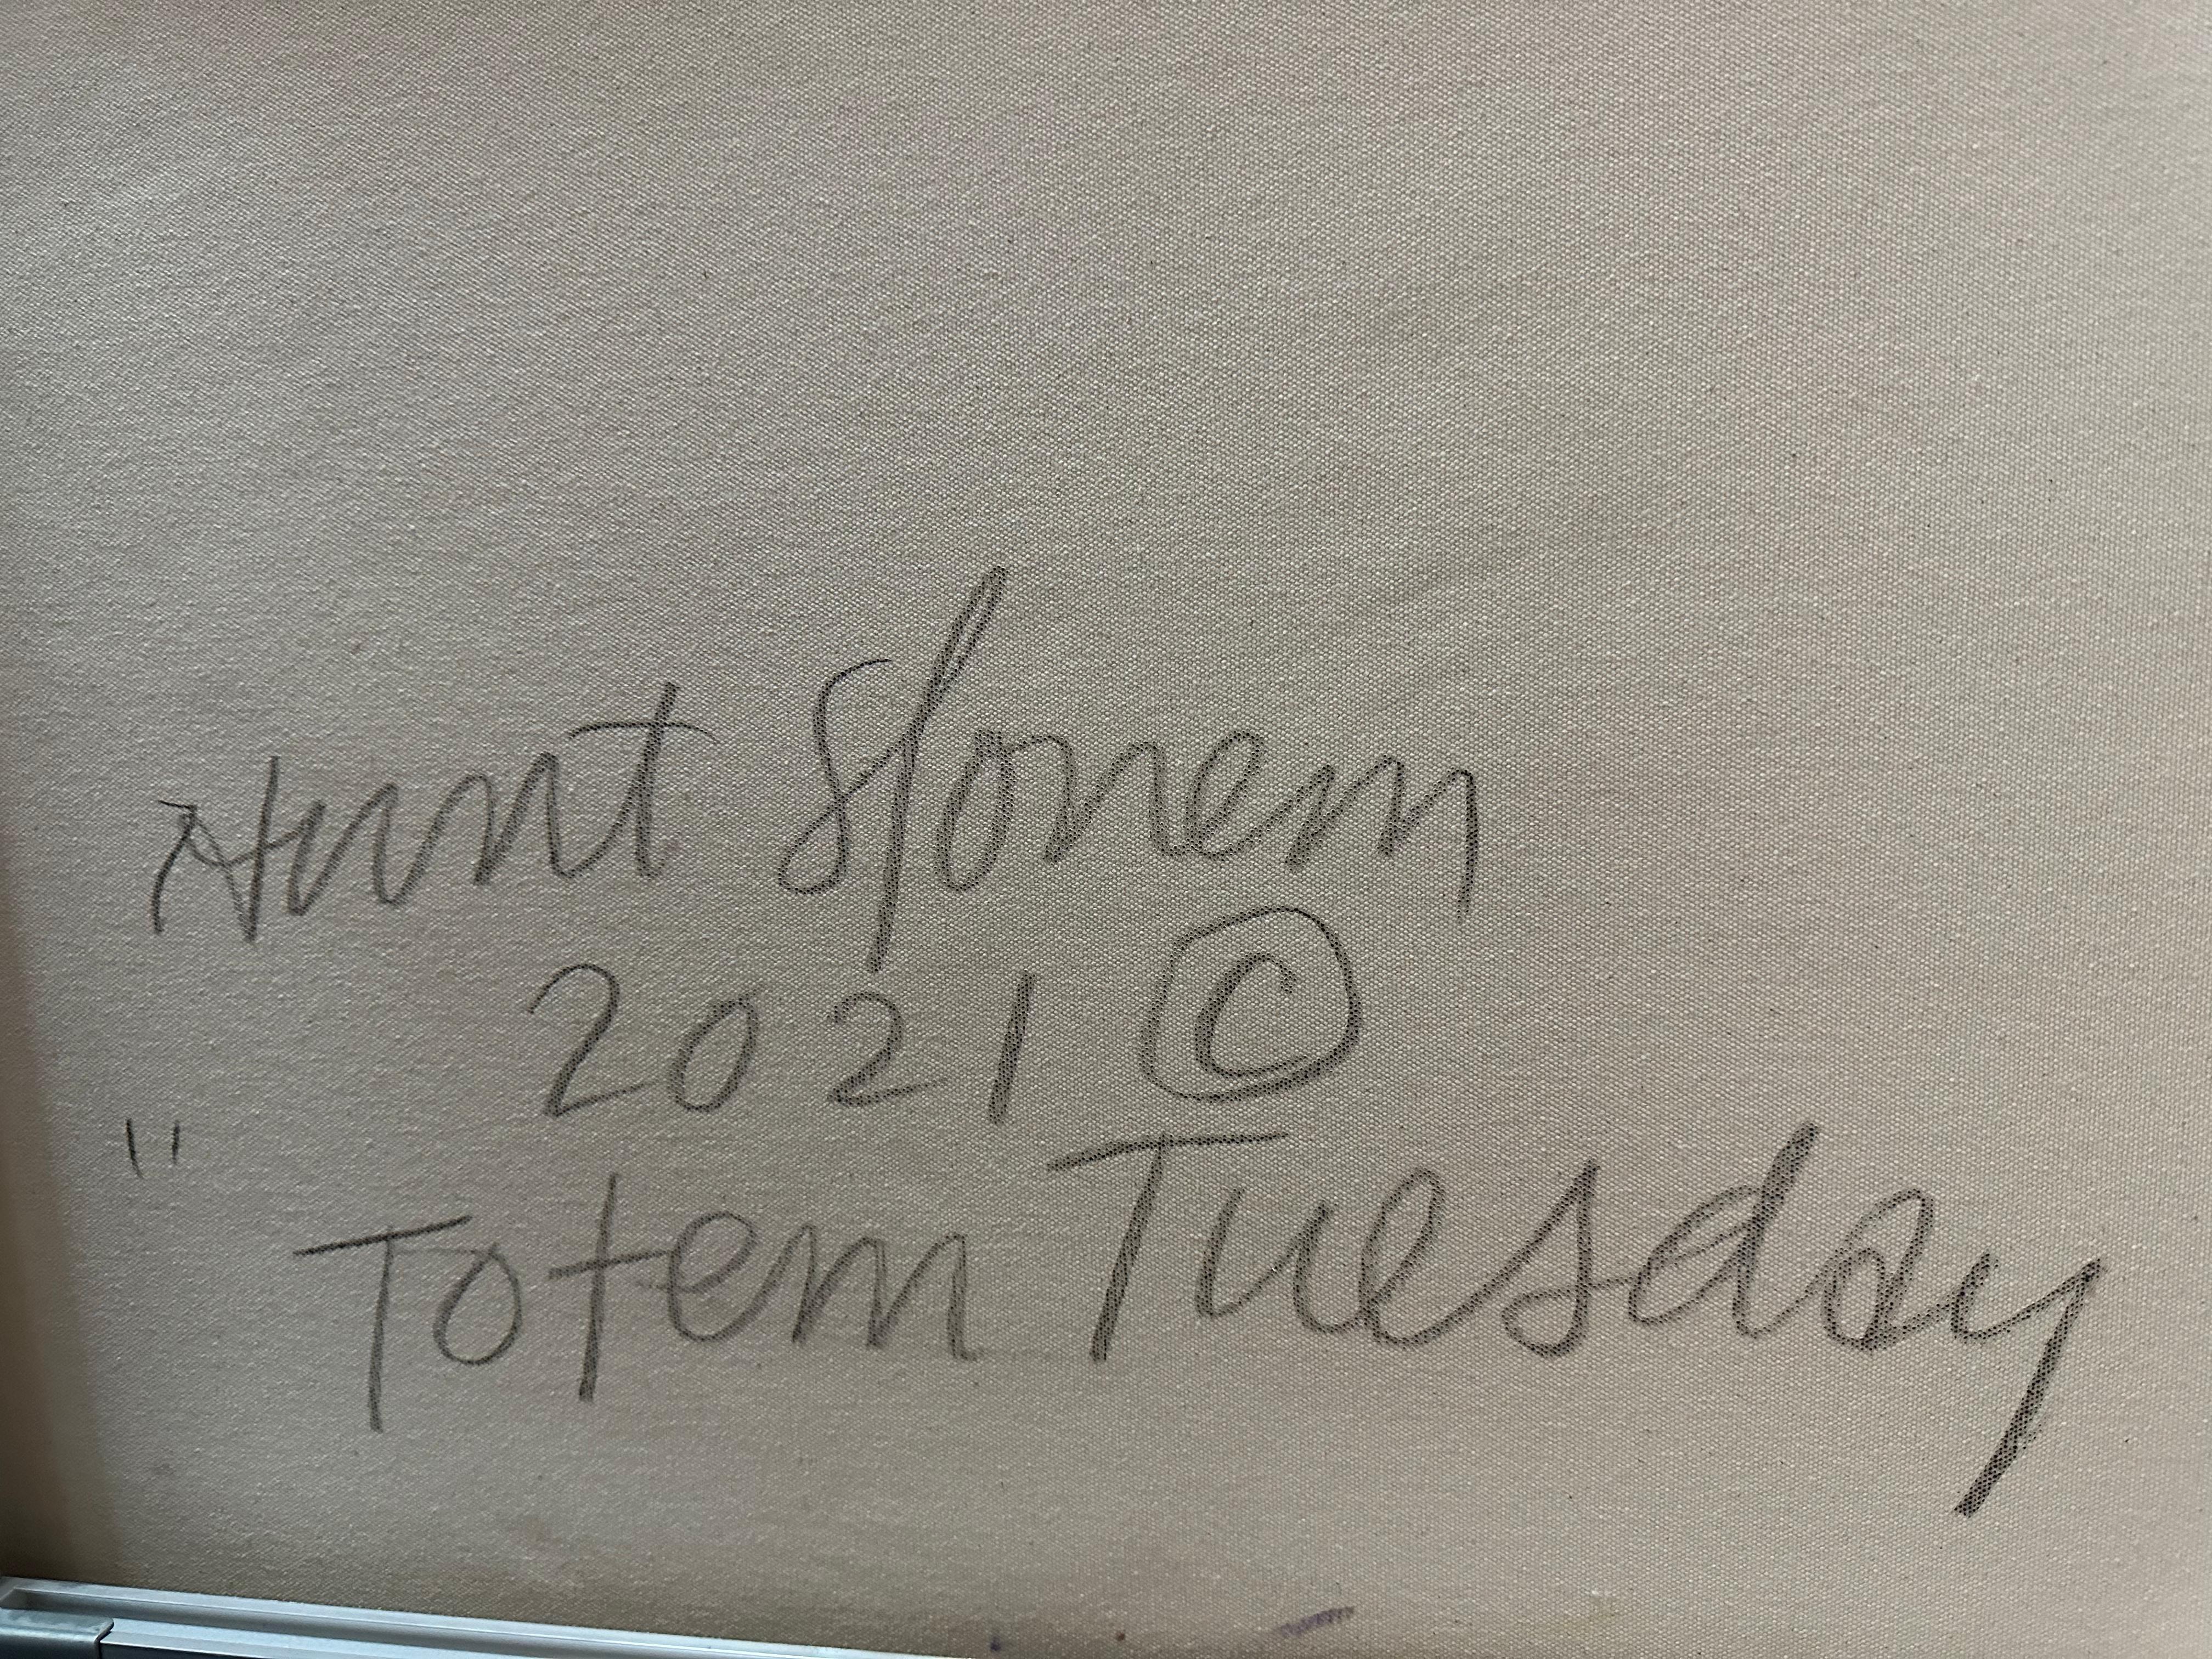 Hunt Slonem
2021 ©
"
Totem Tuesday